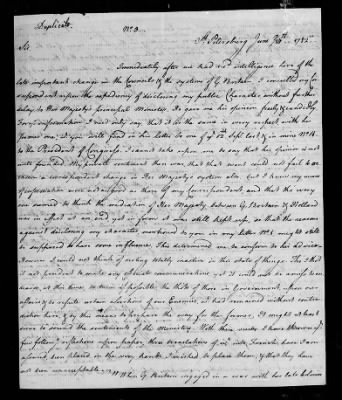 Duplicate. No. 3. St. Petersburg June 1782.
Sir.
Immediately after we had rec'd intelligence here of the
late important change in the Councils & the system of G. Britain I consulted my Cor-
respondent upon the expediency of disclosing my public Character without further
delay, to Her Majesty's principal Minister. He gave me his opinion freely & candidly
upon information I need only say, that it be the same in every respect with his
former one, as you will find in his letter to me of Sept. last & in mine No. 18.
to the President of Congress. I cannot take upon you to say that his opinion is not
well founded. My private sentiment then was, that that event could not fail to oc-
casion a correspondent change in Her Majesty's system also. but I knew my means
of information were not adequate to those of my Correspondent, and that the every
one seemed to think the mediation of Her Majesty between G. Britain & Holland
was in effect at an end yet in form it was still kept up, so that the reasons
against disclosing my character mentioned to you in my letter No. 1. might still
be supposed to have some influence. This determined me to conform to his advice.
However I could not think of resting totally inactive in this state of things. Tho' it
is not prudent to make any official communications yet it could not be amiss to en-
deavor, at this time, to turn if possible, the thots of those in Government, upon our
affairs & to refute certain assertions of our Enemies, it had remained without contra-
diction here, & by this means to prepare the way for the former. It might at least
serve to sound the sentiments of the Ministry. With these views I have thrown a
few thoughts & reflections upon paper, then translations of in French, have I am
assured, been placed in the way, hands I wished to place them, & that they have
not been unacceptable. "When G. Britain engaged in a war with her late Colonies